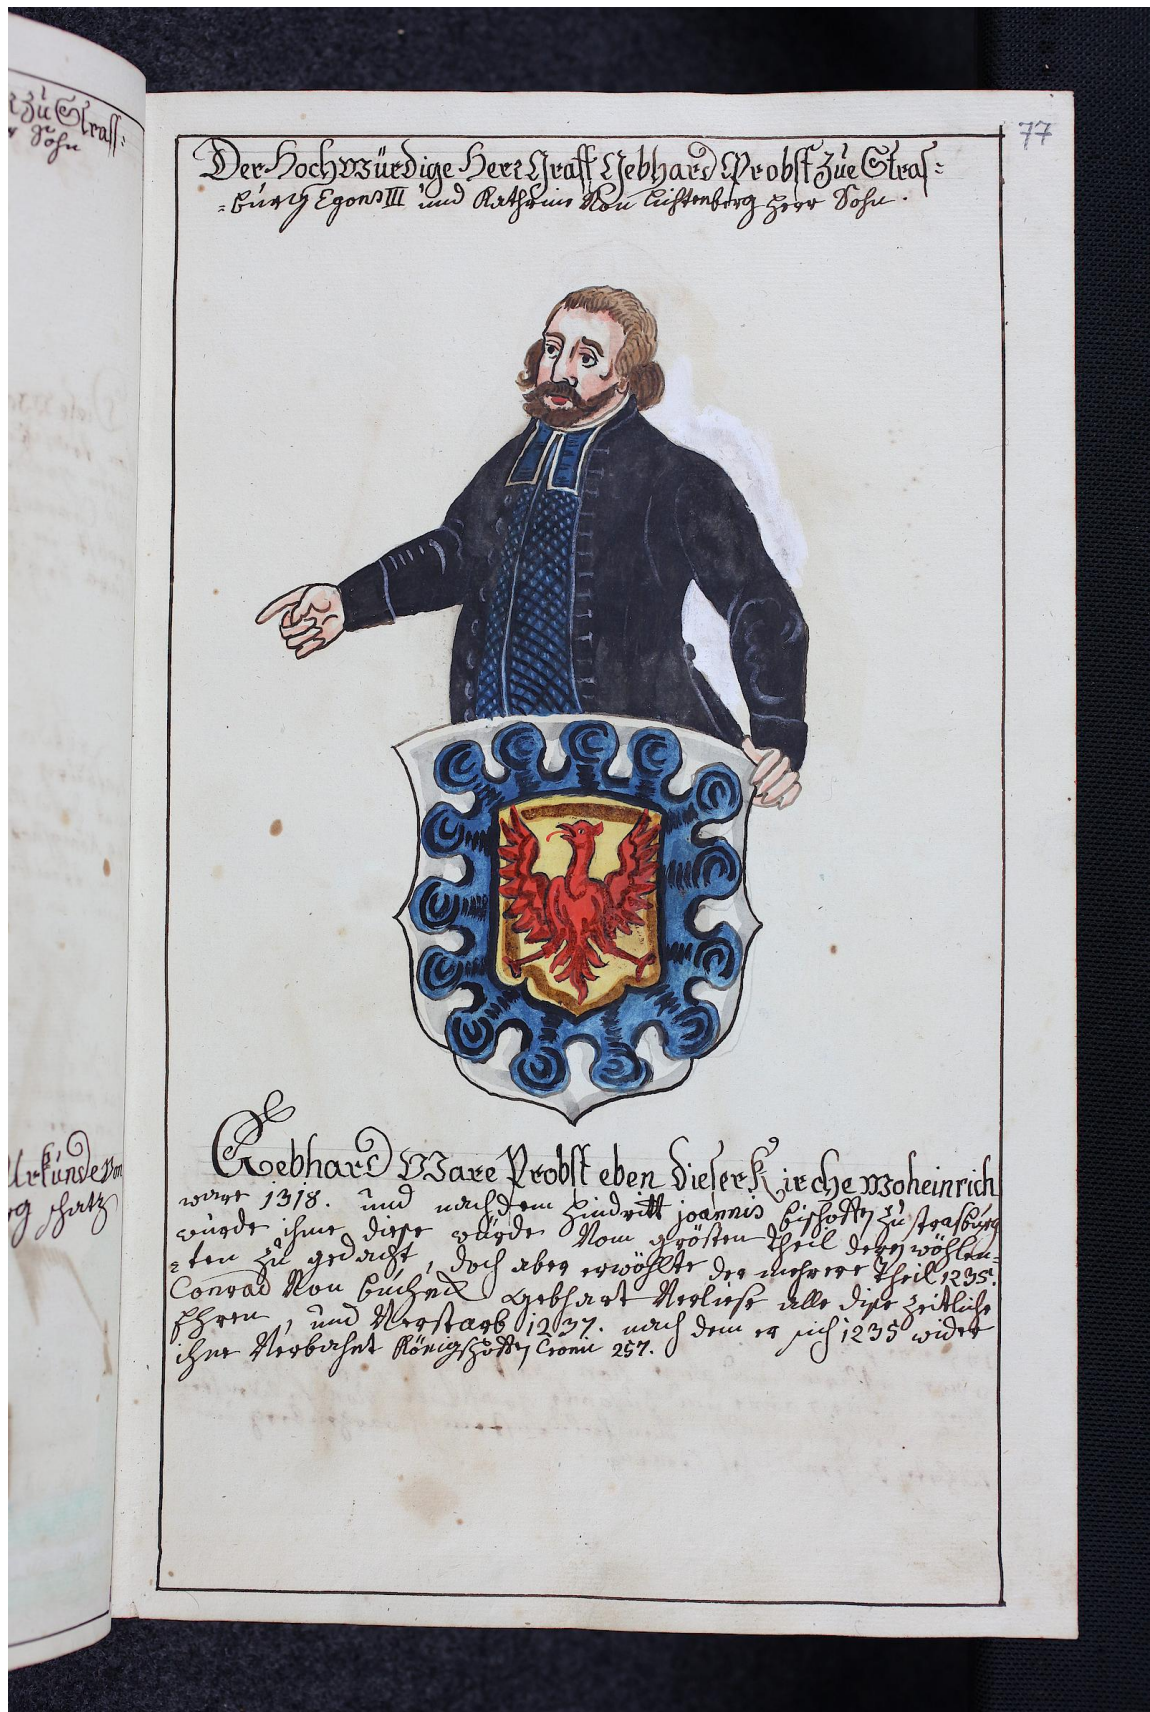 77
Der Hochwürdige Herr Graff Gebhard Probst Zue Stras=
=burg Egons III und Kathrine Von Lichtenberg Herr Sohn.
Gebhard Ware Probst eben dieser Kirche wo heinrich
ware 1318. und nach dem Hindritt joannis bischoffen zu strasburg
wurde ihme diese würde Vom grösten Theil deren wöhlen=
=ten zu gedacht, doch aber erwöhlte der mehrere Theil 1235.
Conrad Von Buchek Gebhart Verliese alle dise Zeitliche
Ehren, und Verstarb 1237. nach dem er sich 1235 wider
ihne Verbahnt Königshoffen Cronic 257.
Zu Strass=
Sohn
Urkunde Von
schatz